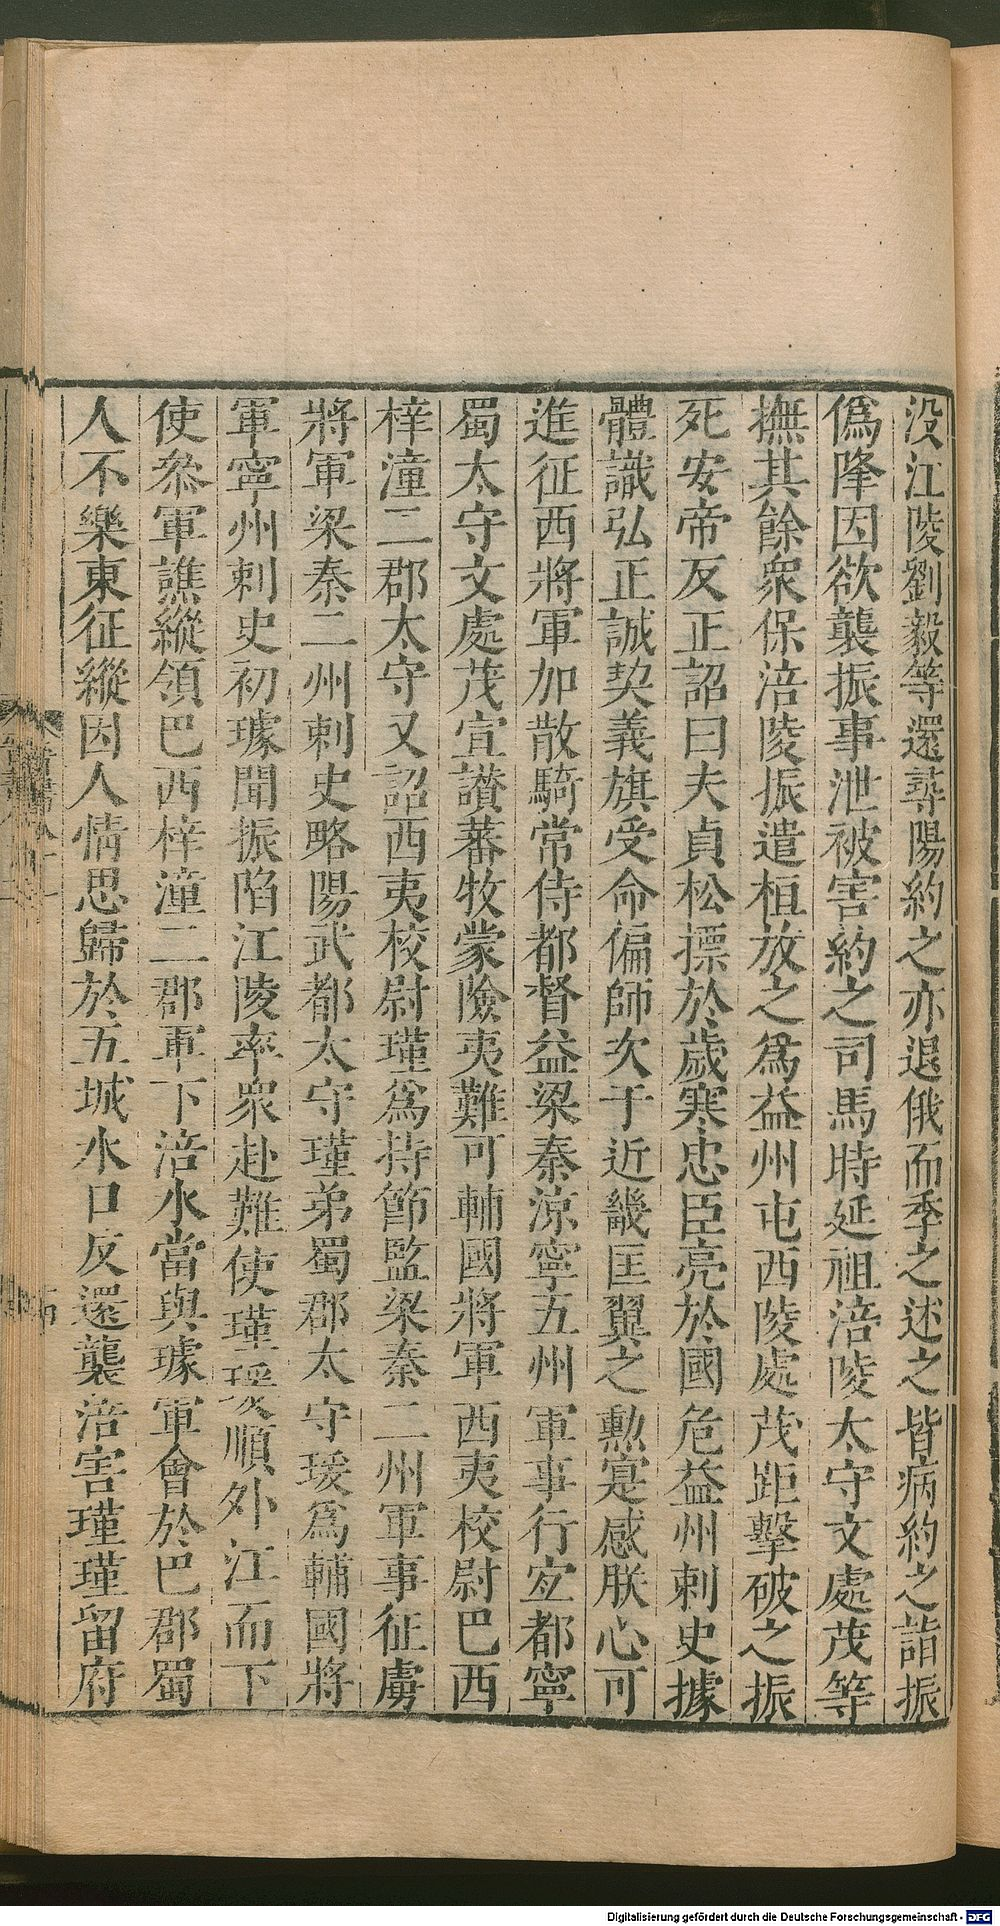 没江陵劉毅等還尋陽約之亦退俄而季之述之皆病約之詣振
僞降因欲襲振事泄被害約之司馬時延祖涪陵太守文處茂等
撫其餘衆保涪陵振遣桓放之爲益州屯西陵處茂距擊破之振
死安帝反正詔曰夫貞松摽於歲寒忠臣亮於國危益州刺史據
體識弘正誠契義旗受命偏師次于近畿匡翼之勲寔感朕心可
進征西將軍加散騎常侍都督益梁秦涼寧五州軍事行宜都寧
蜀太守文處茂宣讃蕃牧蒙險夷難可輔國將軍西夷校尉巴西
梓潼二郡太守又詔西夷校尉瑾爲持節監梁秦二州軍事征虜
將軍梁秦二州刺史略陽武都太守瑾弟蜀郡太守瑗爲輔國將
軍寧州刺史初璩聞振陷江陵率衆赴難使瑾瑗順外江而下
使叅軍譙縱領巴西梓潼二郡軍下涪水當與璩軍會於巴郡蜀
人不樂東征縱因人情思歸於五城水口反還襲涪害瑾瑾留府
晉書
Digitalisierung gefördert durch die Deutsche Forschungsgemeinschaft - DFG